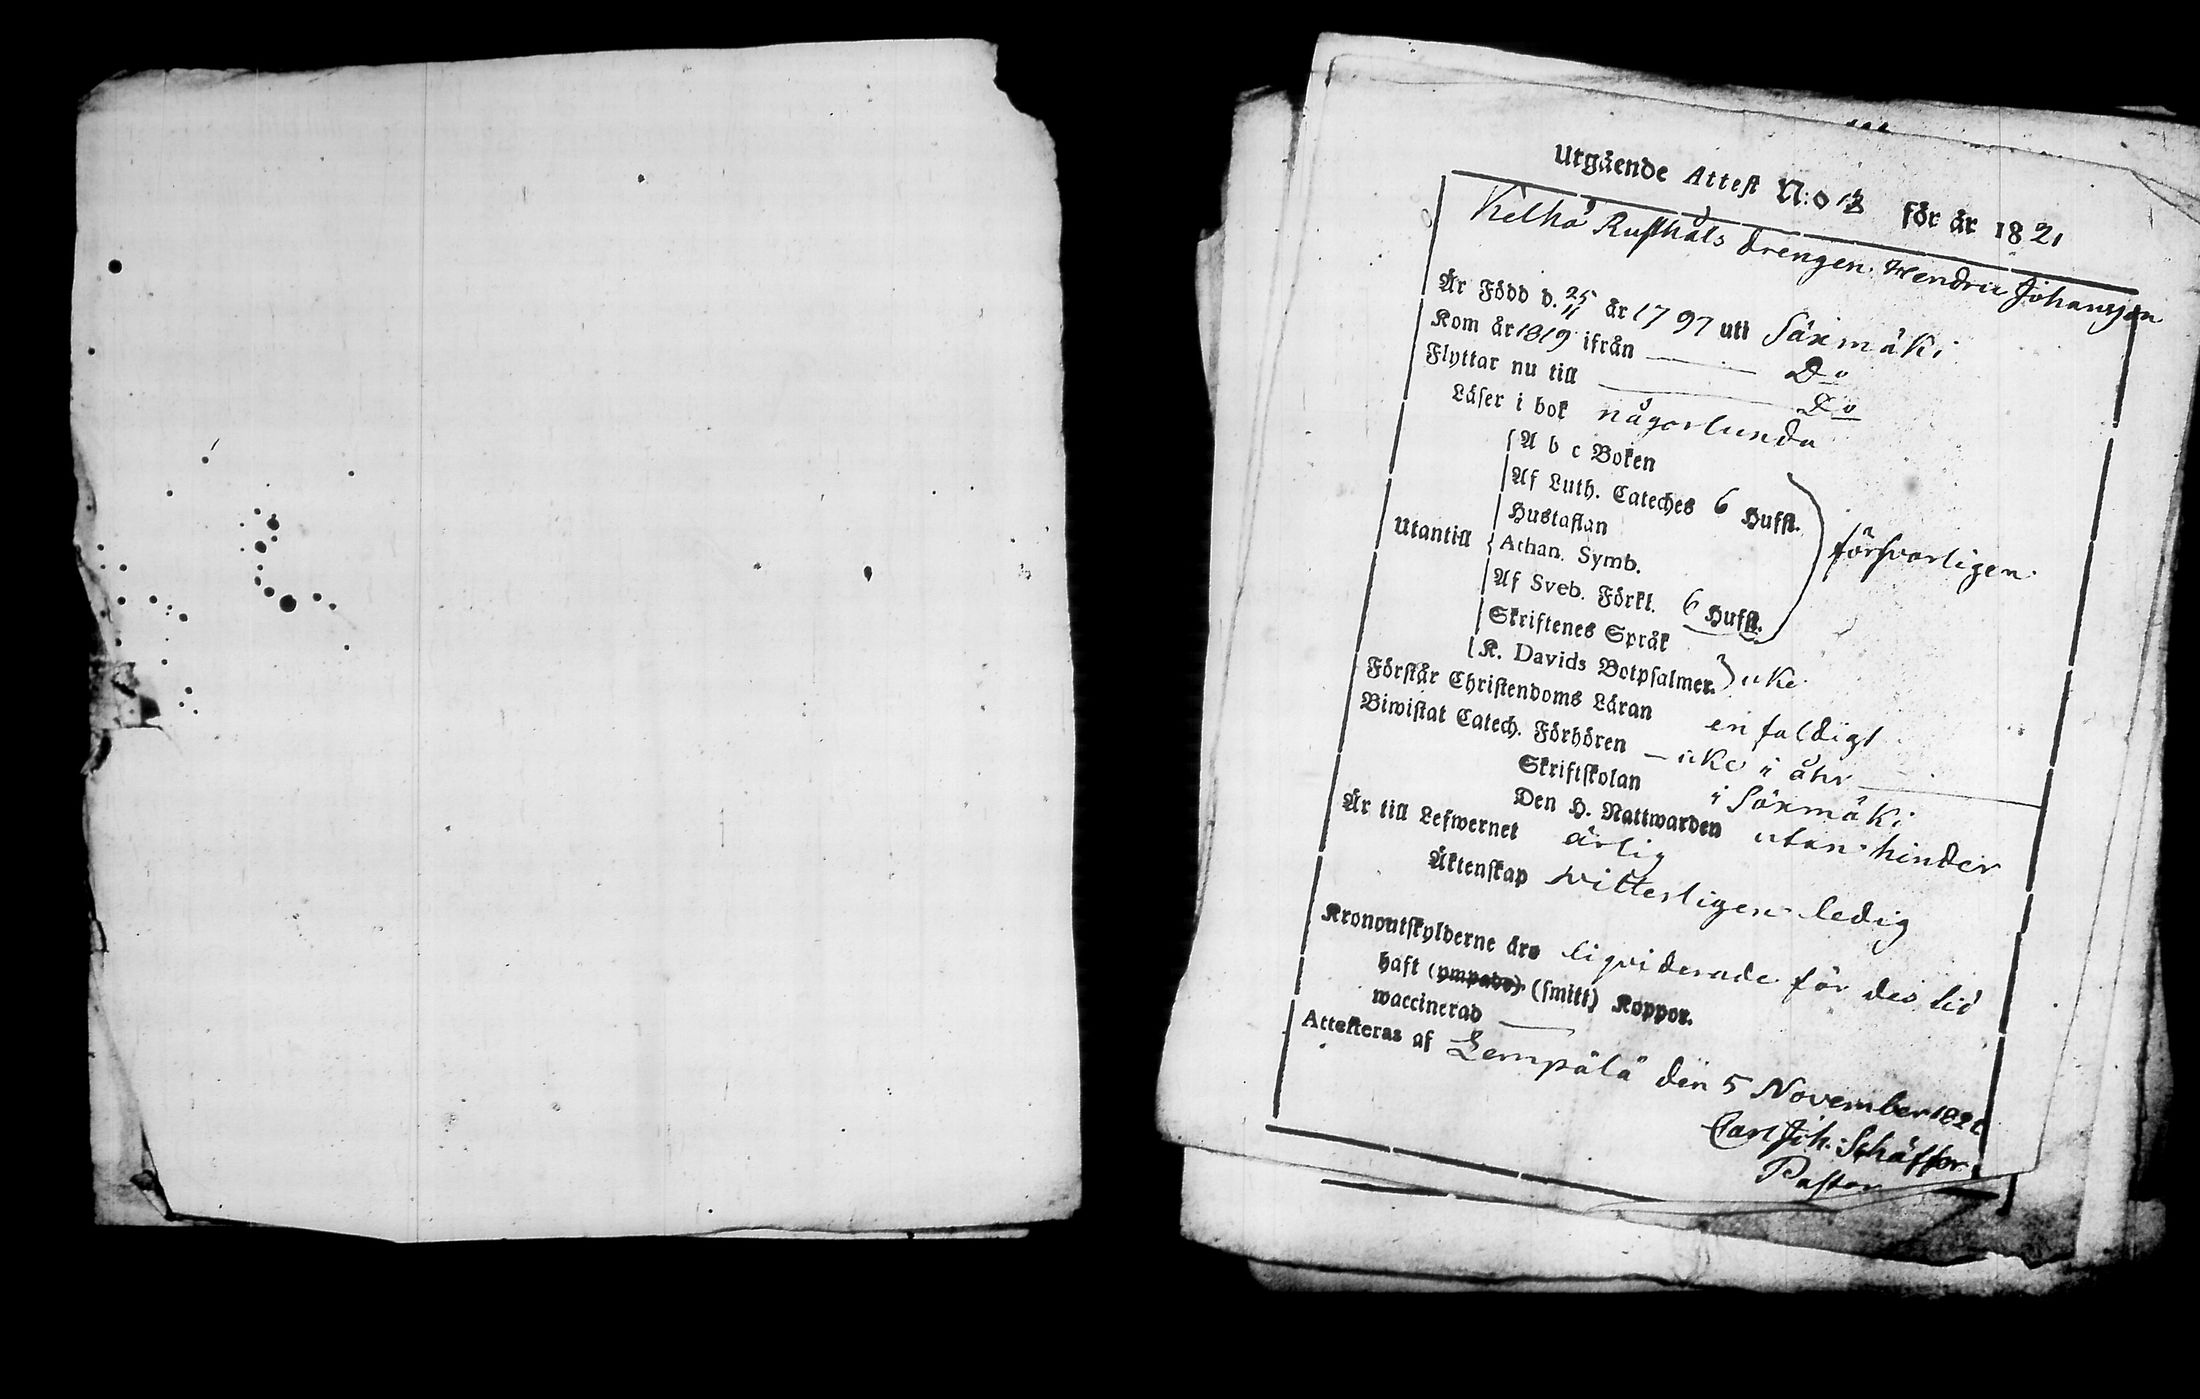 Utgående Attest N:o 12 för år 1821
Kelho Rusthåls drengen Hendric Johansson
Är Född d. 25/11 år 1797 uti Säxmäki
Kom år 1819 ifrån — Do
Flyttar nu till — Do
Läser i bok någorlunda
A b c Boken
Af Luth. Cateches 6 Hufst.
Hustaflan
Utantill
Athan. Symb.
försvarligen
Af Sveb. Förkl. 6 Hufst.
Skriftenes Språk
K. Davids Botpsalmer. icke
Förstår Christendoms Läran enfaldigt
Biwistat Catech. Förhören — icke i åhr —
Skriftskolan i Säxmäki
Den H. Nattwarden utan hinder
Är till Lefwernet ärlig
Äktenskap witterligen ledig
Kronoutskylderne äro liqviderade för des tid
haft (ympade) (smitt) Koppor.
waccinerad —
Attesteras af Lempälä den 5 November 1821
Carl Joh. Schäffer
Pastor